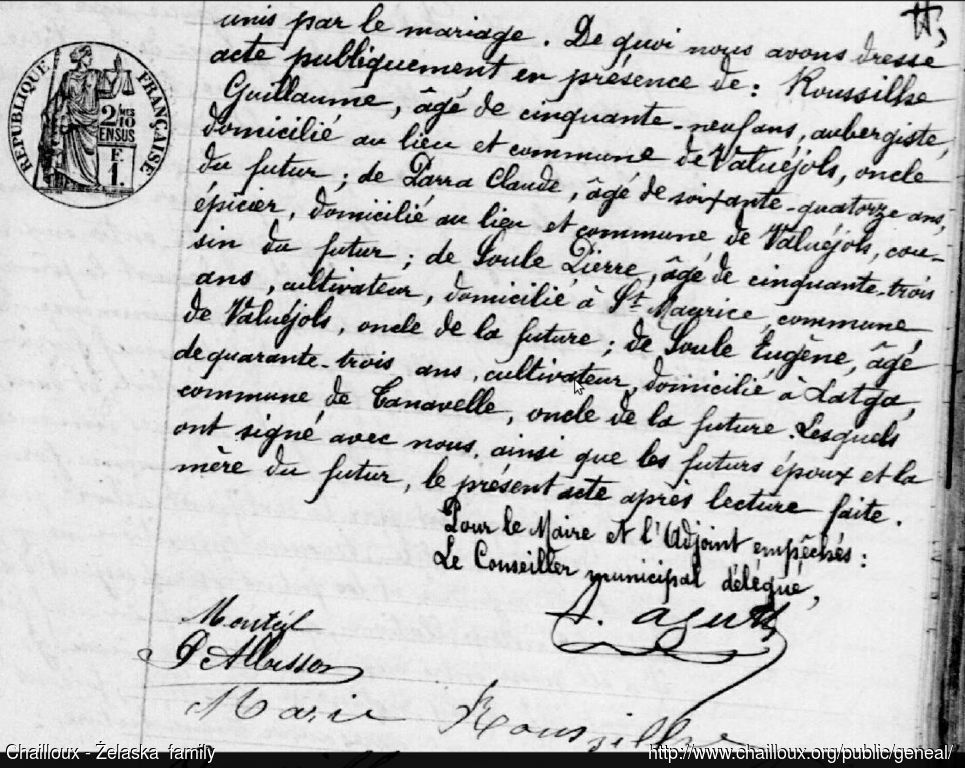 unis par le mariage. De quoi nous avons dressé
acte publiquement en présence de: Roussilhe
Guillaume, âgé de cinquante-neuf ans, aubergiste,
domicilié au lieu et commune de Valuéjols, oncle
du futur; de Parra Claude, âgé de soixante-quatorze ans,
épicier, domicilié au lieu et commune de Valuéjols, cou-
sin du futur; de Soule Pierre, âgé de cinquante-trois
ans, cultivateur, domicilié à St Maurice, commune
de Valuéjols, oncle de la future; de Soule Eugène, âgé
de quarante-trois ans, cultivateur, domicilié à Latga,
commune de Tanavelle, oncle de la future. Lesquels
ont signé avec nous, ainsi que les futurs époux et la
mère du futur, le présent acte après lecture faite.
Pour le Maire et l'Adjoint empêchés:
Le Conseiller municipal délégué,
RÉPUBLIQUE FRANÇAISE
2/10
EN SUS
F.
1.
Monteil
Marie Roussilhe
Chailloux - Żelaska family
http://www.chailloux.org/public/geneal/